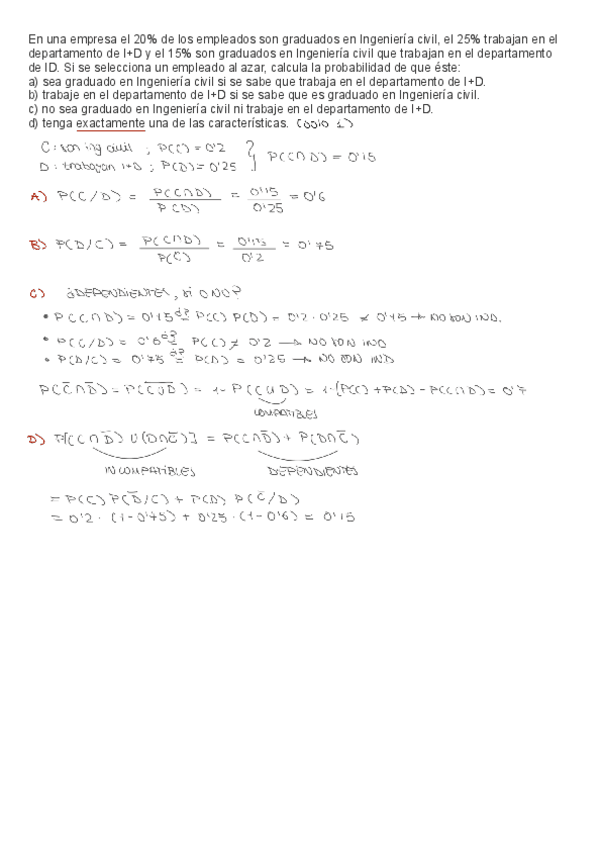 En una empresa el 20% de los empleados son graduados en Ingeniería civil, el 25% trabajan en el
departamento de I+D y el 15% son graduados en Ingeniería civil que trabajan en el departamento
de ID. Si se selecciona un empleado al azar, calcula la probabilidad de que éste:
a) sea graduado en Ingeniería civil si se sabe que trabaja en el departamento de I+D.
b) trabaje en el departamento de I+D si se sabe que es graduado en Ingeniería civil.
c) no sea graduado en Ingeniería civil ni trabaje en el departamento de I+D.
d) tenga exactamente una de las características. (solo 1)
C: son ing civil ; P(C) = 0'2
D: trabajan I+D ; P(D) = 0'25 } P(C∩D) = 0'15
A) P(C/D) = P(C∩D) / P(D) = 0'15 / 0'25 = 0'6
B) P(D/C) = P(C∩D) / P(C) = 0'15 / 0'2 = 0'75
C) ¿DEPENDIENTES, SI O NO?
• P(C∩D) = 0'15 ¿=? P(C) P(D) = 0'2 · 0'25 ≠ 0'15 → NO SON IND.
• P(C/D) = 0'6 ¿=? P(C) ≠ 0'2 → NO SON IND
• P(D/C) = 0'75 ¿=? P(D) = 0'25 → NO SON IND
P(C̅∩D̅) = P(C̅U̅D̅) = 1 - P(CUD) = 1-(P(C) + P(D) - P(C∩D) = 0'7
COMPATIBLES
D) P[(C∩D̅) U (D∩C̅)] = P(C∩D̅) + P(D∩C̅)
INCOMPATIBLES DEPENDIENTES
= P(C) P(D̅/C) + P(D) P(C̅/D)
= 0'2 · (1 - 0'75) + 0'25 · (1 - 0'6) = 0'15